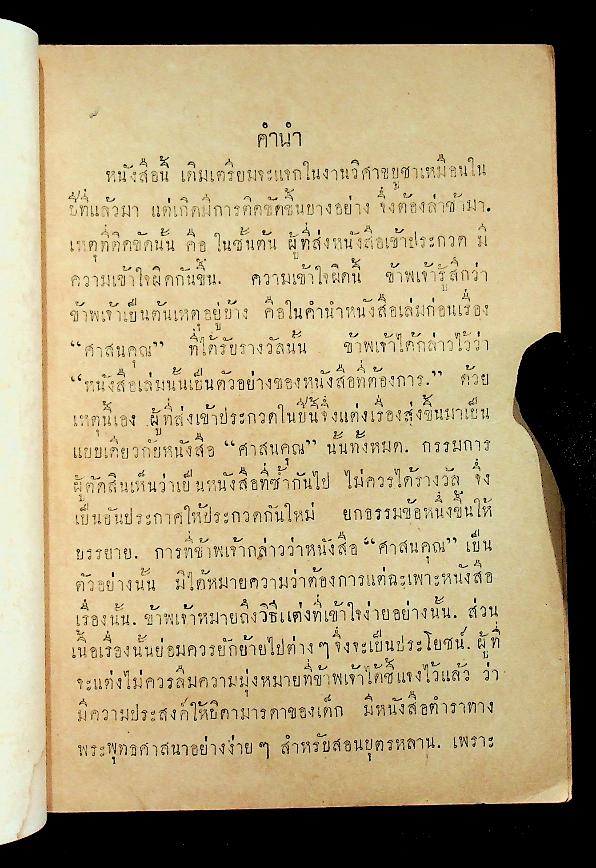 คำนำ
หนังสือนี้ เดิมเตรียมจะแจกในงานวิศาขบูชาเหมือนใน
ปีที่แล้วมา แต่เกิดมีการติดขัดขึ้นบางอย่าง จึ่งต้องล่าช้ามา.
เหตุที่ติดขัดนั้น คือ ในชั้นต้น ผู้ที่ส่งหนังสือเข้าประกวด มี
ความเข้าใจผิดกันขึ้น. ความเข้าใจผิดนี้ ข้าพเจ้ารู้สึกว่า
ข้าพเจ้าเป็นต้นเหตุอยู่บ้าง คือในคำนำหนังสือเล่มก่อนเรื่อง
“ศาสนคุณ” ที่ได้รับรางวัลนั้น ข้าพเจ้าได้กล่าวไว้ว่า
“หนังสือเล่มนั้นเป็นตัวอย่างของหนังสือที่ต้องการ.” ด้วย
เหตุนี้เอง ผู้ที่ส่งเข้าประกวดในปีนี้จึ่งแต่งเรื่องส่งขึ้นมาเป็น
แบบเดียวกับหนังสือ “ศาสนคุณ” นั้นทั้งหมด. กรรมการ
ผู้ตัดสินเห็นว่าเป็นหนังสือที่ซ้ำกันไป ไม่ควรได้รางวัล จึ่ง
เป็นอันประกาศให้ประกวดกันใหม่ ยกธรรมข้อหนึ่งขึ้นให้
บรรยาย. การที่ข้าพเจ้ากล่าวว่าหนังสือ “ศาสนคุณ” เป็น
ตัวอย่างนั้น มิได้หมายความว่าต้องการแต่ฉะเพาะหนังสือ
เรื่องนั้น. ข้าพเจ้าหมายถึงวิธีแต่งที่เข้าใจง่ายอย่างนั้น. ส่วน
เนื้อเรื่องนั้นย่อมควรยักย้ายไปต่าง ๆ จึ่งจะเป็นประโยชน์. ผู้ที่
จะแต่งไม่ควรลืมความมุ่งหมายที่ข้าพเจ้าได้ชี้แจงไว้แล้ว ว่า
มีความประสงค์ให้บิดามารดาของเด็ก มีหนังสือตำราทาง
พระพุทธศาสนาอย่างง่าย ๆ สำหรับสอนบุตรหลาน. เพราะ